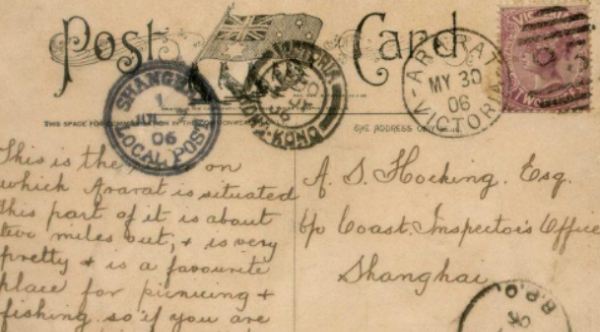 Post Card
SHANGHAI
1
JUL
06
LOCAL POST
VICTORIA
HONG-KONG
ARARAT
MY 30
06
VICTORIA
VICTORIA
TWO
THIS SPACE FOR
ADDRESS ONLY
This is the on
which Ararat is situated
This part of it is about
two miles out, + is very
pretty + is a favourite
place for picnicing +
fishing so if you are
A. S. Hocking. Esq.
c/o Coast Inspector's Office
Shanghai
B.P.O.